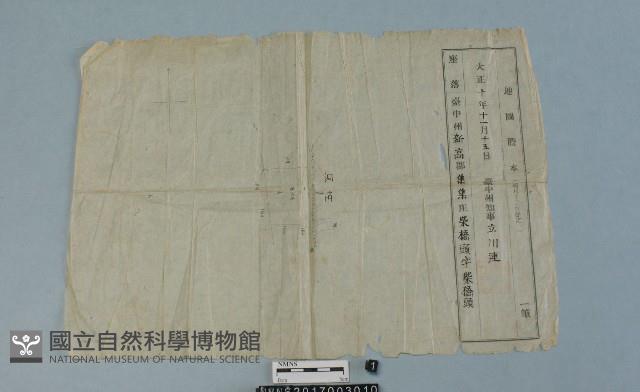 地圖謄本
一筆
大正十年十一月十五日 臺中州知事立川連
座落 臺中州新高郡集集庄柴橋頭字柴橋頭
國立自然科學博物館
NATIONAL MUSEUM OF NATURAL SCIENCE
NMNS
1
2017003010